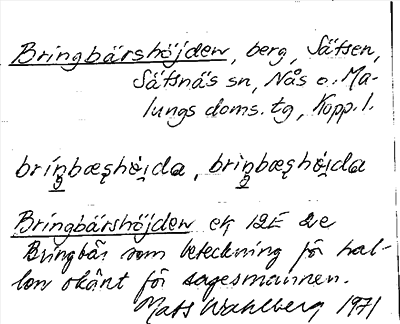 Bringbärshöjden, berg, Sätsen,
Säfsnäs sn, Nås o. Ma-
lungs doms. tg, Kopp. l.
brìŋbæşhö̀i̯da, brìŋbæşhö̀i̯da
Bringbärshöjden ek 12E 2e
Bringbär som beteckning för hal-
lon okänt för sagesmannen.
Mats Wahlberg 1971